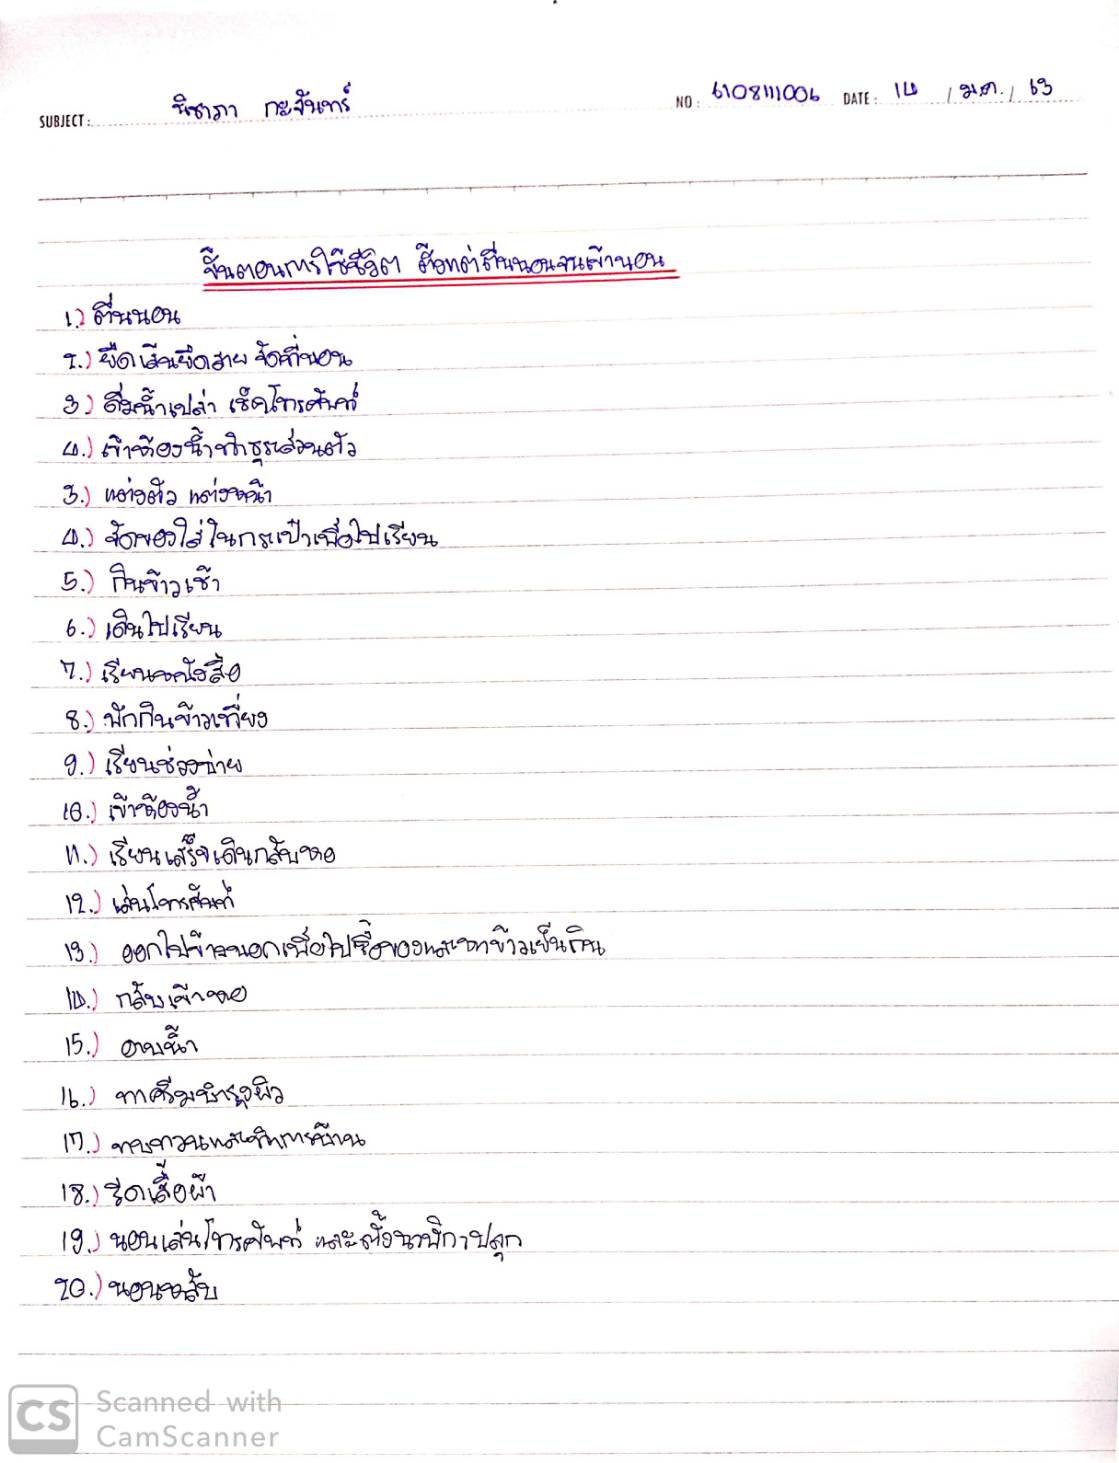 SUBJECT: นิชาภา กะจันทร์ NO: 6108111006 DATE: 14 / ม.ค. / 63
ขั้นตอนการใช้ชีวิต ตั้งแต่ตื่นนอนจนเข้านอน
1.) ตื่นนอน
2.) ยืดเส้นยืดสาย จัดที่นอน
3.) ดื่มน้ำเปล่า เช็คโทรศัพท์
4.) เข้าห้องน้ำทำธุระส่วนตัว
3.) แต่งตัว แต่งหน้า
4.) จัดของใส่ในกระเป๋าเพื่อไปเรียน
5.) กินข้าวเช้า
6.) เดินไปเรียน
7.) เรียนหนังสือ
8.) พักกินข้าวเที่ยง
9.) เรียนช่วงบ่าย
10.) เข้าห้องน้ำ
11.) เรียนเสร็จเดินกลับหอ
12.) เล่นโทรศัพท์
13.) ออกไปข้างนอกเพื่อไปซื้อของและหาข้าวเย็นกิน
14.) กลับเข้าหอ
15.) อาบน้ำ
16.) ทาครีมบำรุงผิว
17.) ทบทวนและทำการบ้าน
18.) รีดเสื้อผ้า
19.) นอนเล่นโทรศัพท์ และตั้งนาฬิกาปลุก
20.) นอนหลับ
CS Scanned with
CamScanner